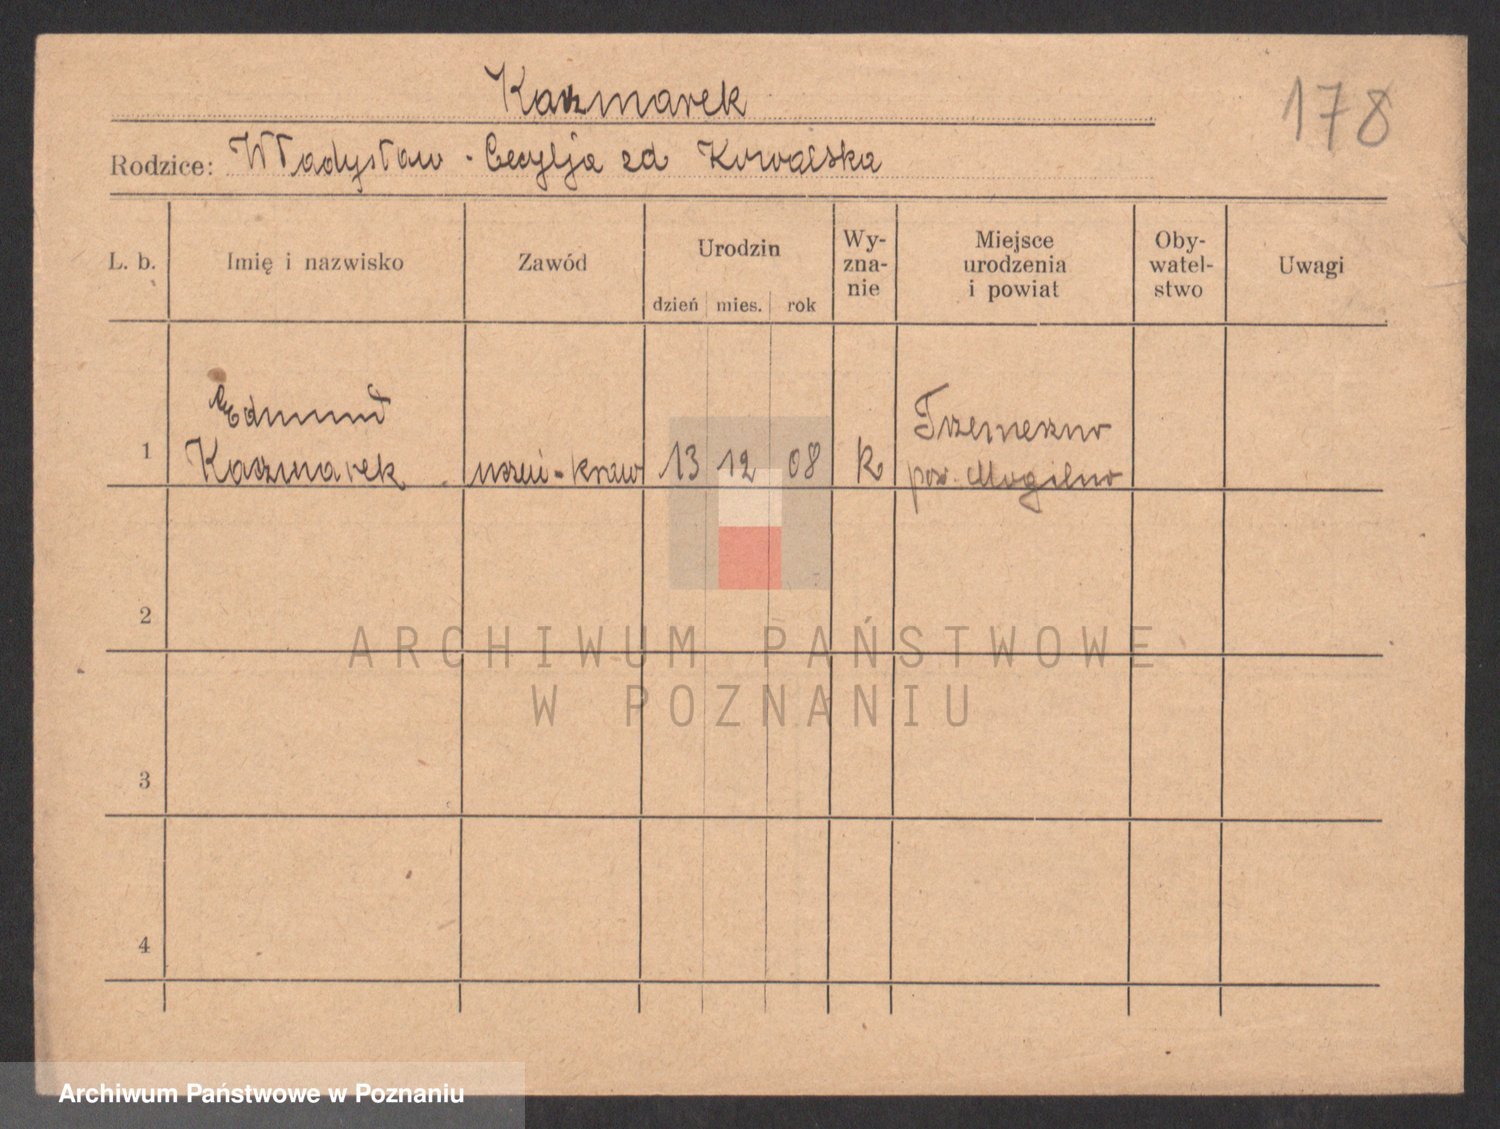 Kaczmarek
178
Rodzice: Władysław - Cecylja zd Kowalska
L. b.
Imię i nazwisko
Zawód
Urodzin
dzień mies. rok
Wy-
zna-
nie
Miejsce
urodzenia
i powiat
Oby-
watel-
stwo
Uwagi
1
Edmund
Kaczmarek
uczeń - kraw
13 12 08
k
Trzemeszno
pow. Mogilno
2
3
4
ARCHIWUM PAŃSTWOWE
W POZNANIU
Archiwum Państwowe w Poznaniu